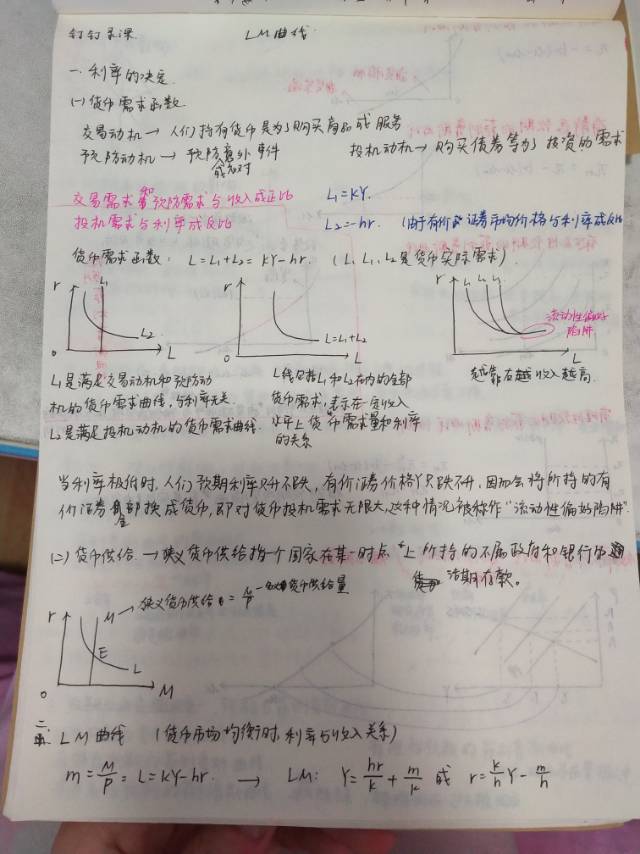 钉钉录课        LM曲线
一.利率的决定.
(一)货币需求函数.
交易动机→人们持有货币是为了购买商品或服务
预防动机→预防意外事件        投机动机→购买债券等为了投资的需求
或应对
交易需求和预防需求与收入成正比        L₁=kY.
投机需求与利率成反比        L₂=-hr. (由于有价证券市场价格与利率成反比
货币需求函数: L=L₁+L₂=kY-hr. (L、L₁、L₂是货币实际需求).
r  L₁  L₂  o  L
r  L=L₁+L₂  o  L
r  L₁ L₂ L₃  流动性偏好陷阱  o  L
越靠右越收入越高.
L₁是满足交易动机和预防动
机的货币需求曲线,与利率无关.
L₂是满足投机动机的货币需求曲线.
L线包括L₁和L₂在内的全部
货币需求,表示在一定收入
水平上货币需求量和利率
的关系
当利率极低时,人们预期利率只升不跌,有价证券价格只跌不升,因而会将所持的有
价证券全部换成货币,即对货币投机需求无限大,这种情况被称作“流动性偏好陷阱”.
(二)货币供给.→狭义货币供给指一个国家在某一时点上所持的不属政府和银行的通
活期存款。
r  M→狭义货币供给  = M/P  货币供给量
E  L  o  M
二. LM曲线 (货币市场均衡时,利率与收入关系)
m=M/P=L=kY-hr. → LM: Y=hr/k+m/k 或 r=k/h Y-m/h